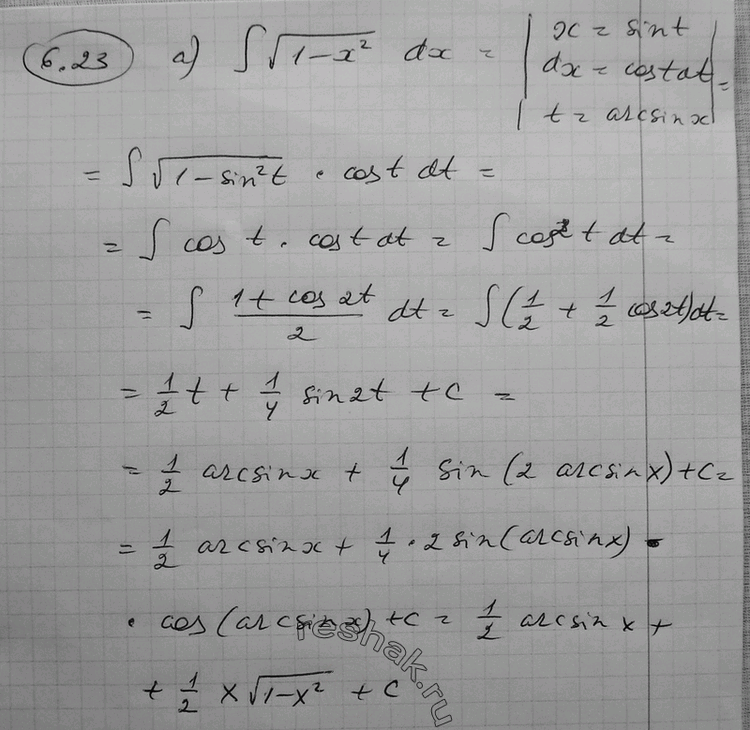 6.23 a) ∫ √(1-x²) dx = | x = sin t
dx = cos t dt =
t = arcsin x |
= ∫ √(1-sin²t) · cos t dt =
= ∫ cos t · cos t dt = ∫ cos² t dt =
= ∫ (1 + cos 2t)/2 dt = ∫(1/2 + 1/2 cos 2t)dt =
= 1/2 t + 1/4 sin 2t + C =
= 1/2 arcsin x + 1/4 sin (2 arcsin x) + C =
= 1/2 arcsin x + 1/4 · 2 sin(arcsin x) ·
· cos (arcsin x) + C = 1/2 arcsin x +
+ 1/2 x √(1-x²) + C
reshak.ru